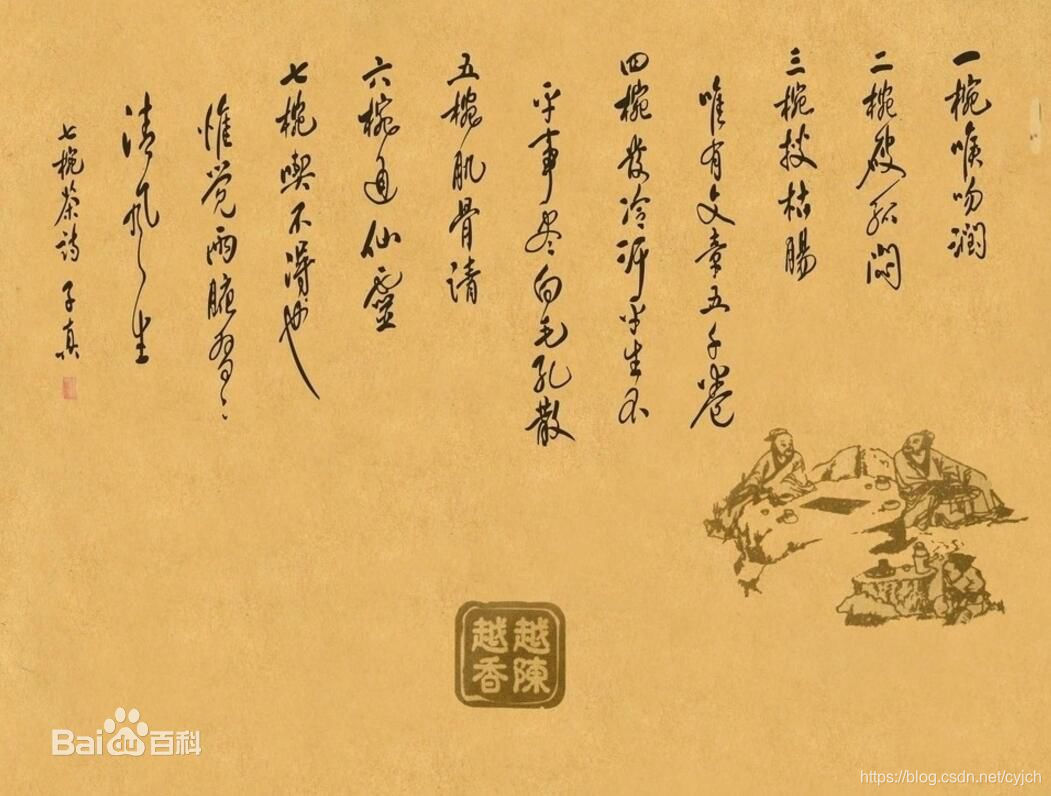 一椀喉吻潤
二椀破孤悶
三椀搜枯腸
唯有文章五千卷
四椀发冷汗平生不
平事尽向毛孔散
五椀肌骨清
六椀通仙靈
七椀喫不得也
惟觉兩腋習習
清风生
七椀茶诗 子真
越陳
越香
Bai du 百科
https://blog.csdn.net/cyjch